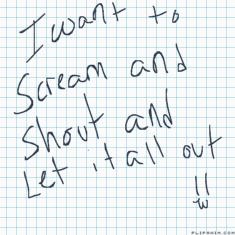 I want to
Scream and
Shout and
Let it all out
!!
FLIPANIM.COM